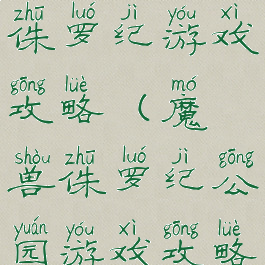 zhū luó jì yóu xì
侏罗纪游戏
gōng lüè mó
攻略（魔
shòu zhū luó jì gōng
兽侏罗纪公
yuán yóu xì gōng lüè
园游戏攻略